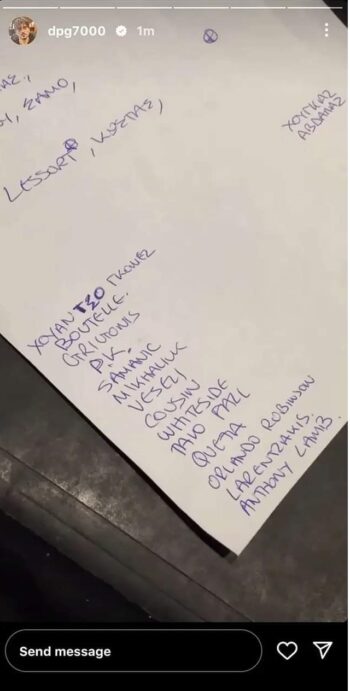 dpg7000 1m
ΑΣ,
, ΣΑΜΟ,
LESSORT, ΚΩΣΤΑΣ,
ΧΟΥΓΚΑΣ
ΑΒΔΑΛΑΣ
ΧΟΥΑΝ ΤΣΟ ΓΚΟΝΕΣ
BOUTELLE.
GRIGONIS
P.K.
SAMANIC
MIKHAILIUK
VESELI
COUSIN
WHITESIDE
TAVO PAZI
QUETA
ORLANDO ROBINSON
LARENTZAKIS.
ANTHONY LAMB.
Send message